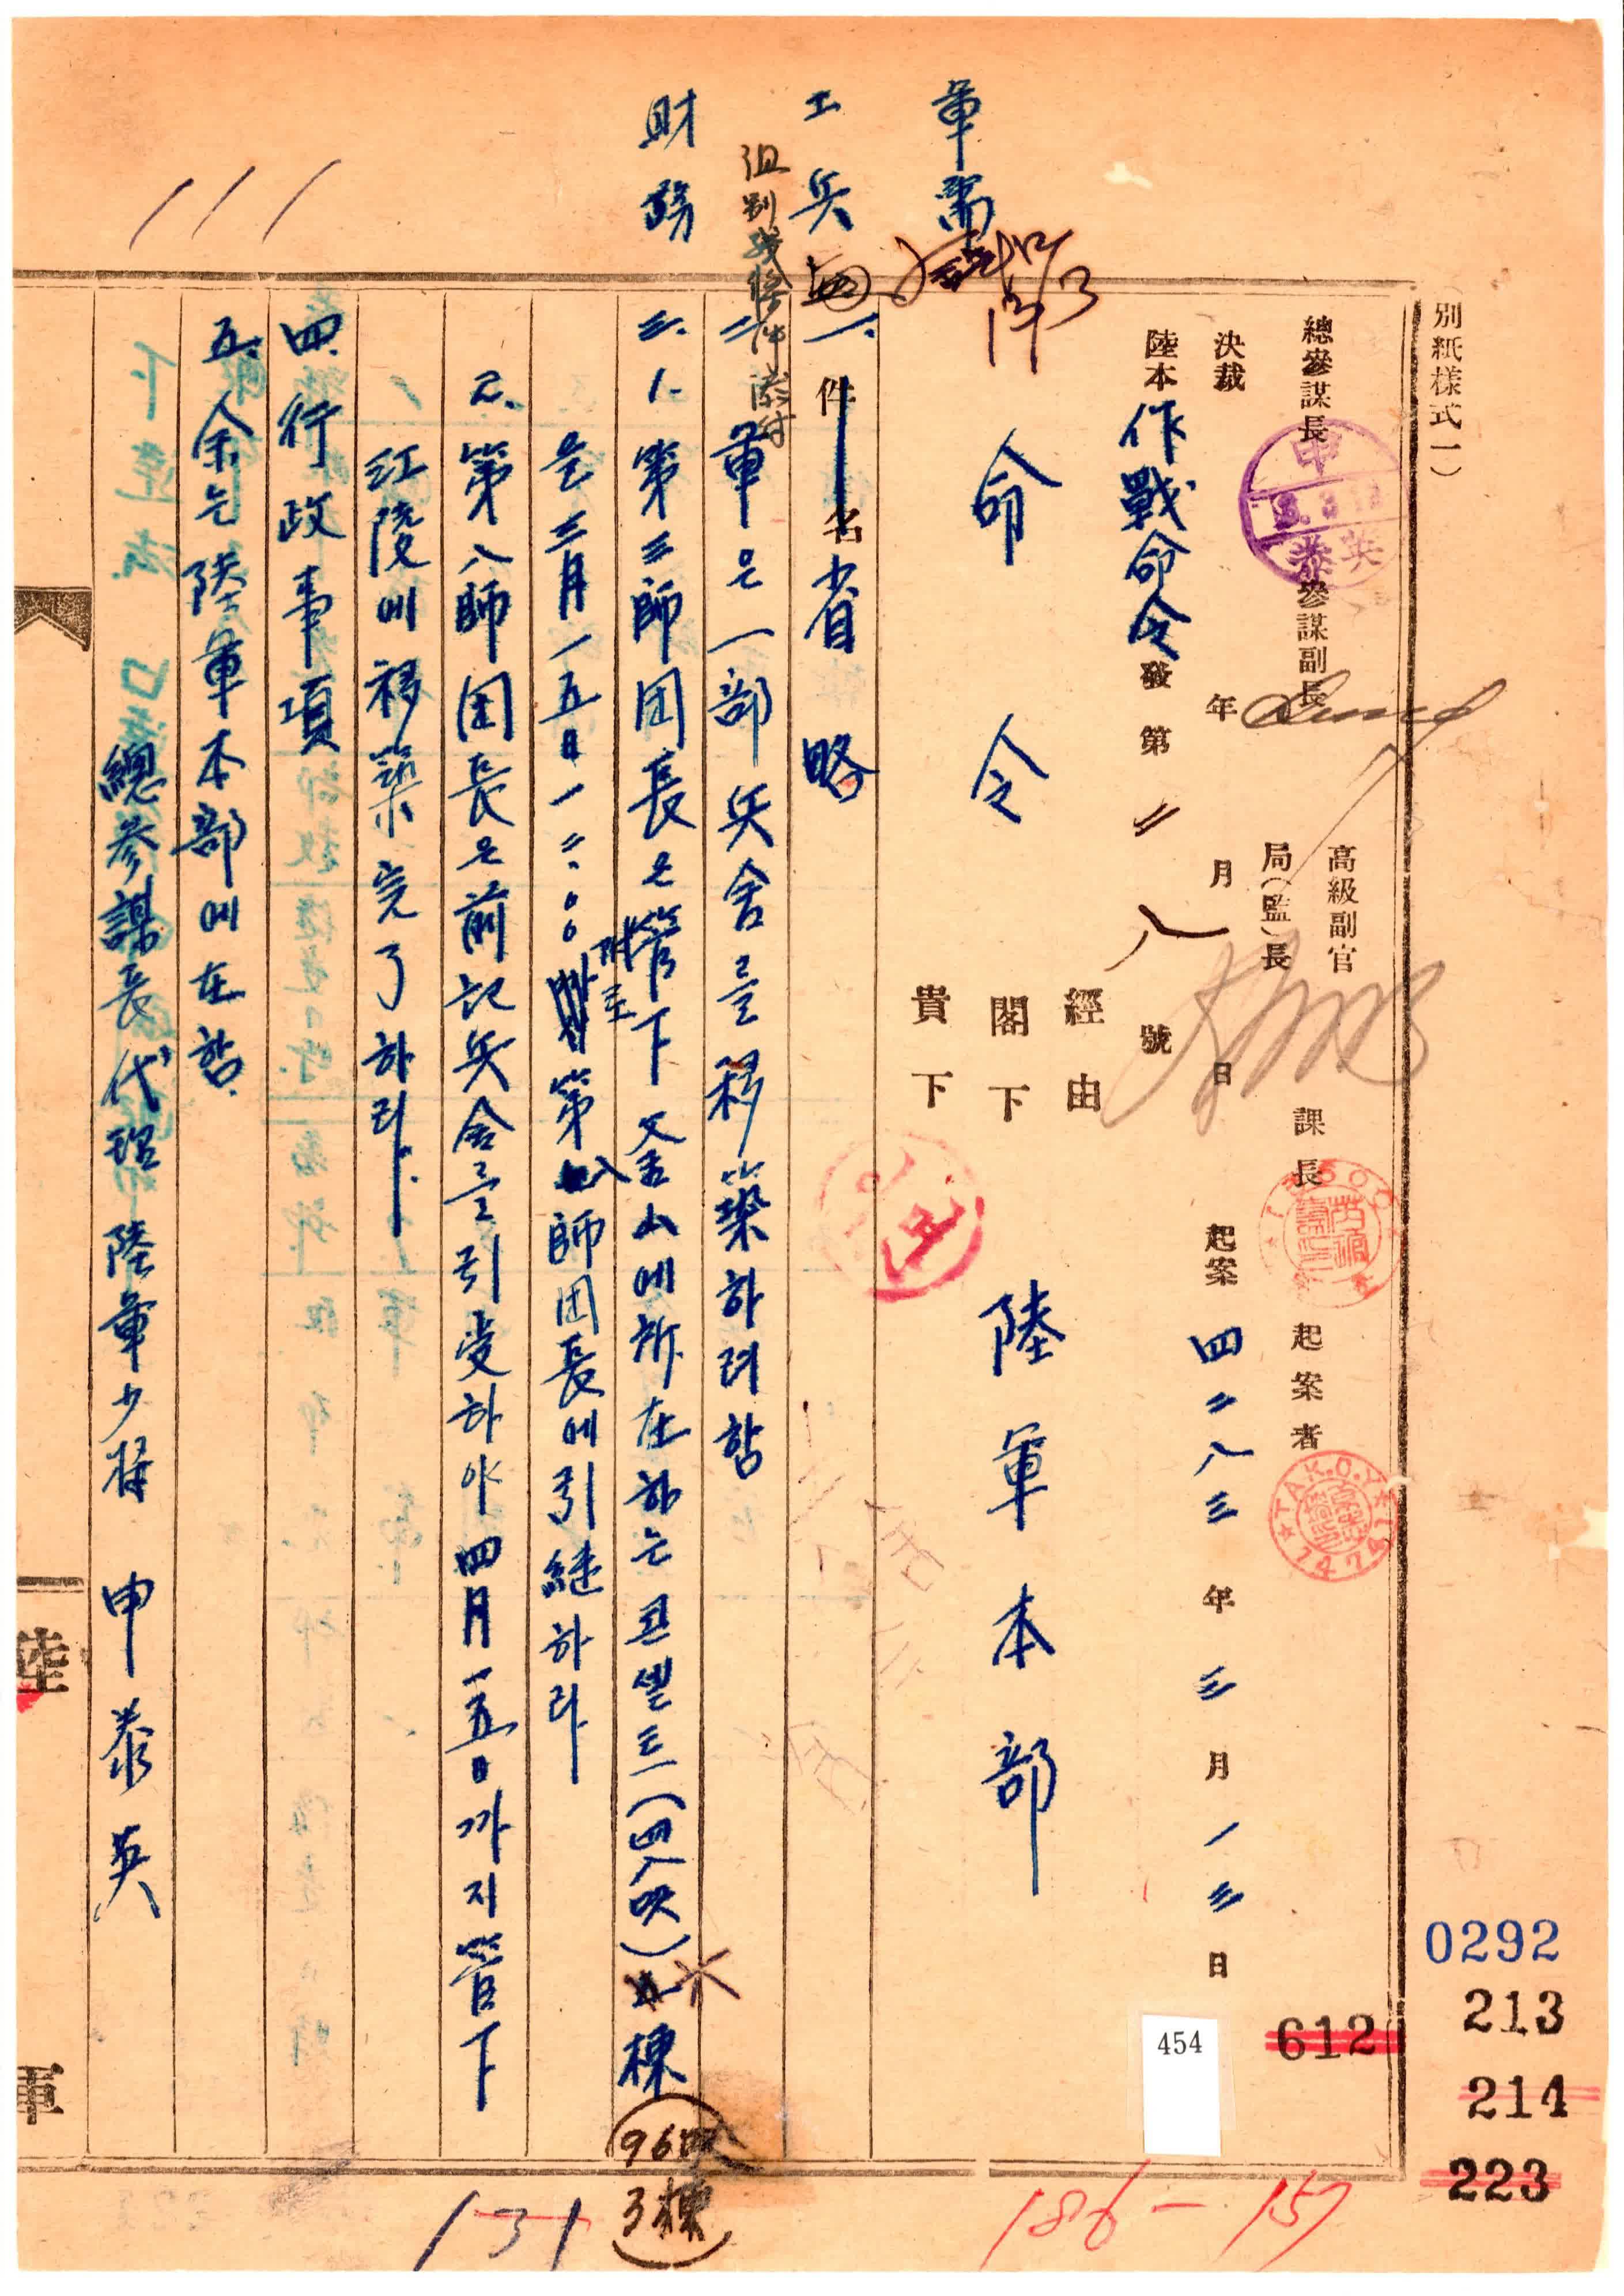 別紙樣式一)
總參謀長
參謀副長
高級副官
局(監)長
課長
起案者
決裁
年
月
日
起案 四二八三 年 三 月 一三 日
陸本 作戰命令 發 第 二八 號
經由
閣下
貴下
命令
陸軍本部
軍需
工兵
財務
一. 件名 省略
二. 軍은 一部 兵舍를 移築하려 함
三. 1. 第三師団長은 管下 釜山에 所在하는 콘셀트 (四八呎) 棟
96呎
3棟
은 三月一五日 一二:〇〇 附로 第八師団長에 引継하라
2. 第八師団長은 前記 兵舍를 引受하야 四月一五日까지 管下
江陵에 移築 完了하라.
四. 行政事項
五. 余는 陸軍本部에 在함.
總參謀長代理 陸軍少將 申泰英
陸
軍
申
泰英
TAK.O.Y
7474
454
0292
213
612
214
223
131
186-157